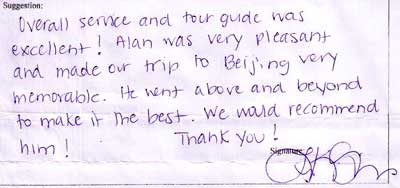 Suggestion:
Overall service and tour guide was
excellent! Alan was very pleasant
and made our trip to Beijing very
memorable. He went above and beyond
to make it the best. We would recommend
him!
Thank you!
Signature: